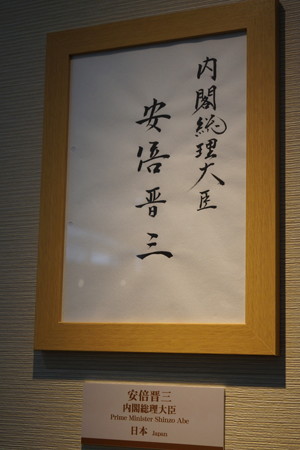 内閣総理大臣
安倍晋三
安倍晋三
内閣総理大臣
Prime Minister Shinzo Abe
日本 Japan